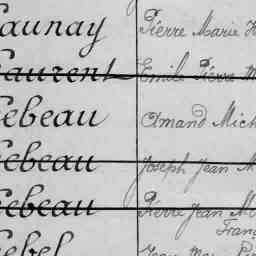 aunay Pierre Marie
Laurent Emile Pierre M
Lebeau Amand Mich
Lebeau Joseph Jean M
Lebeau Pierre Jean M
Franç
Lebel Jean Mar